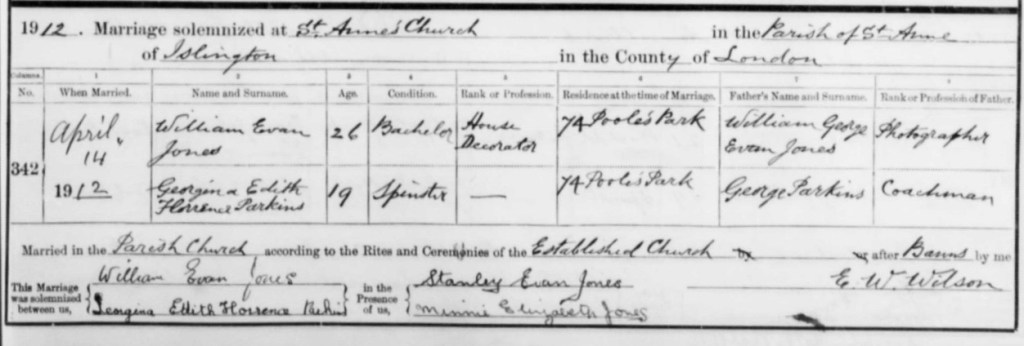 1912. Marriage solemnized at St. Anne's Church in the Parish of St. Anne
of Islington in the County of London
Columns. 1 2 3 4 5 6 7 8
No. When Married. Name and Surname. Age. Condition. Rank or Profession. Residence at the time of Marriage. Father's Name and Surname. Rank or Profession of Father.
April William Evan 26 Bachelor House 74 Poole's Park William George Photographer
14 Jones Decorator Evan Jones
342
1912 Georgina Edith 19 Spinster — 74 Poole's Park George Parkins Coachman
Florrence Parkins
Married in the Parish Church according to the Rites and Ceremonies of the Established Church after Banns by me
This Marriage was solemnized between us, William Evan Jones in the Presence of us, Stanley Evan Jones E. W. Wilson
Georgina Edith Florrence Minnie Elizabeth Jones